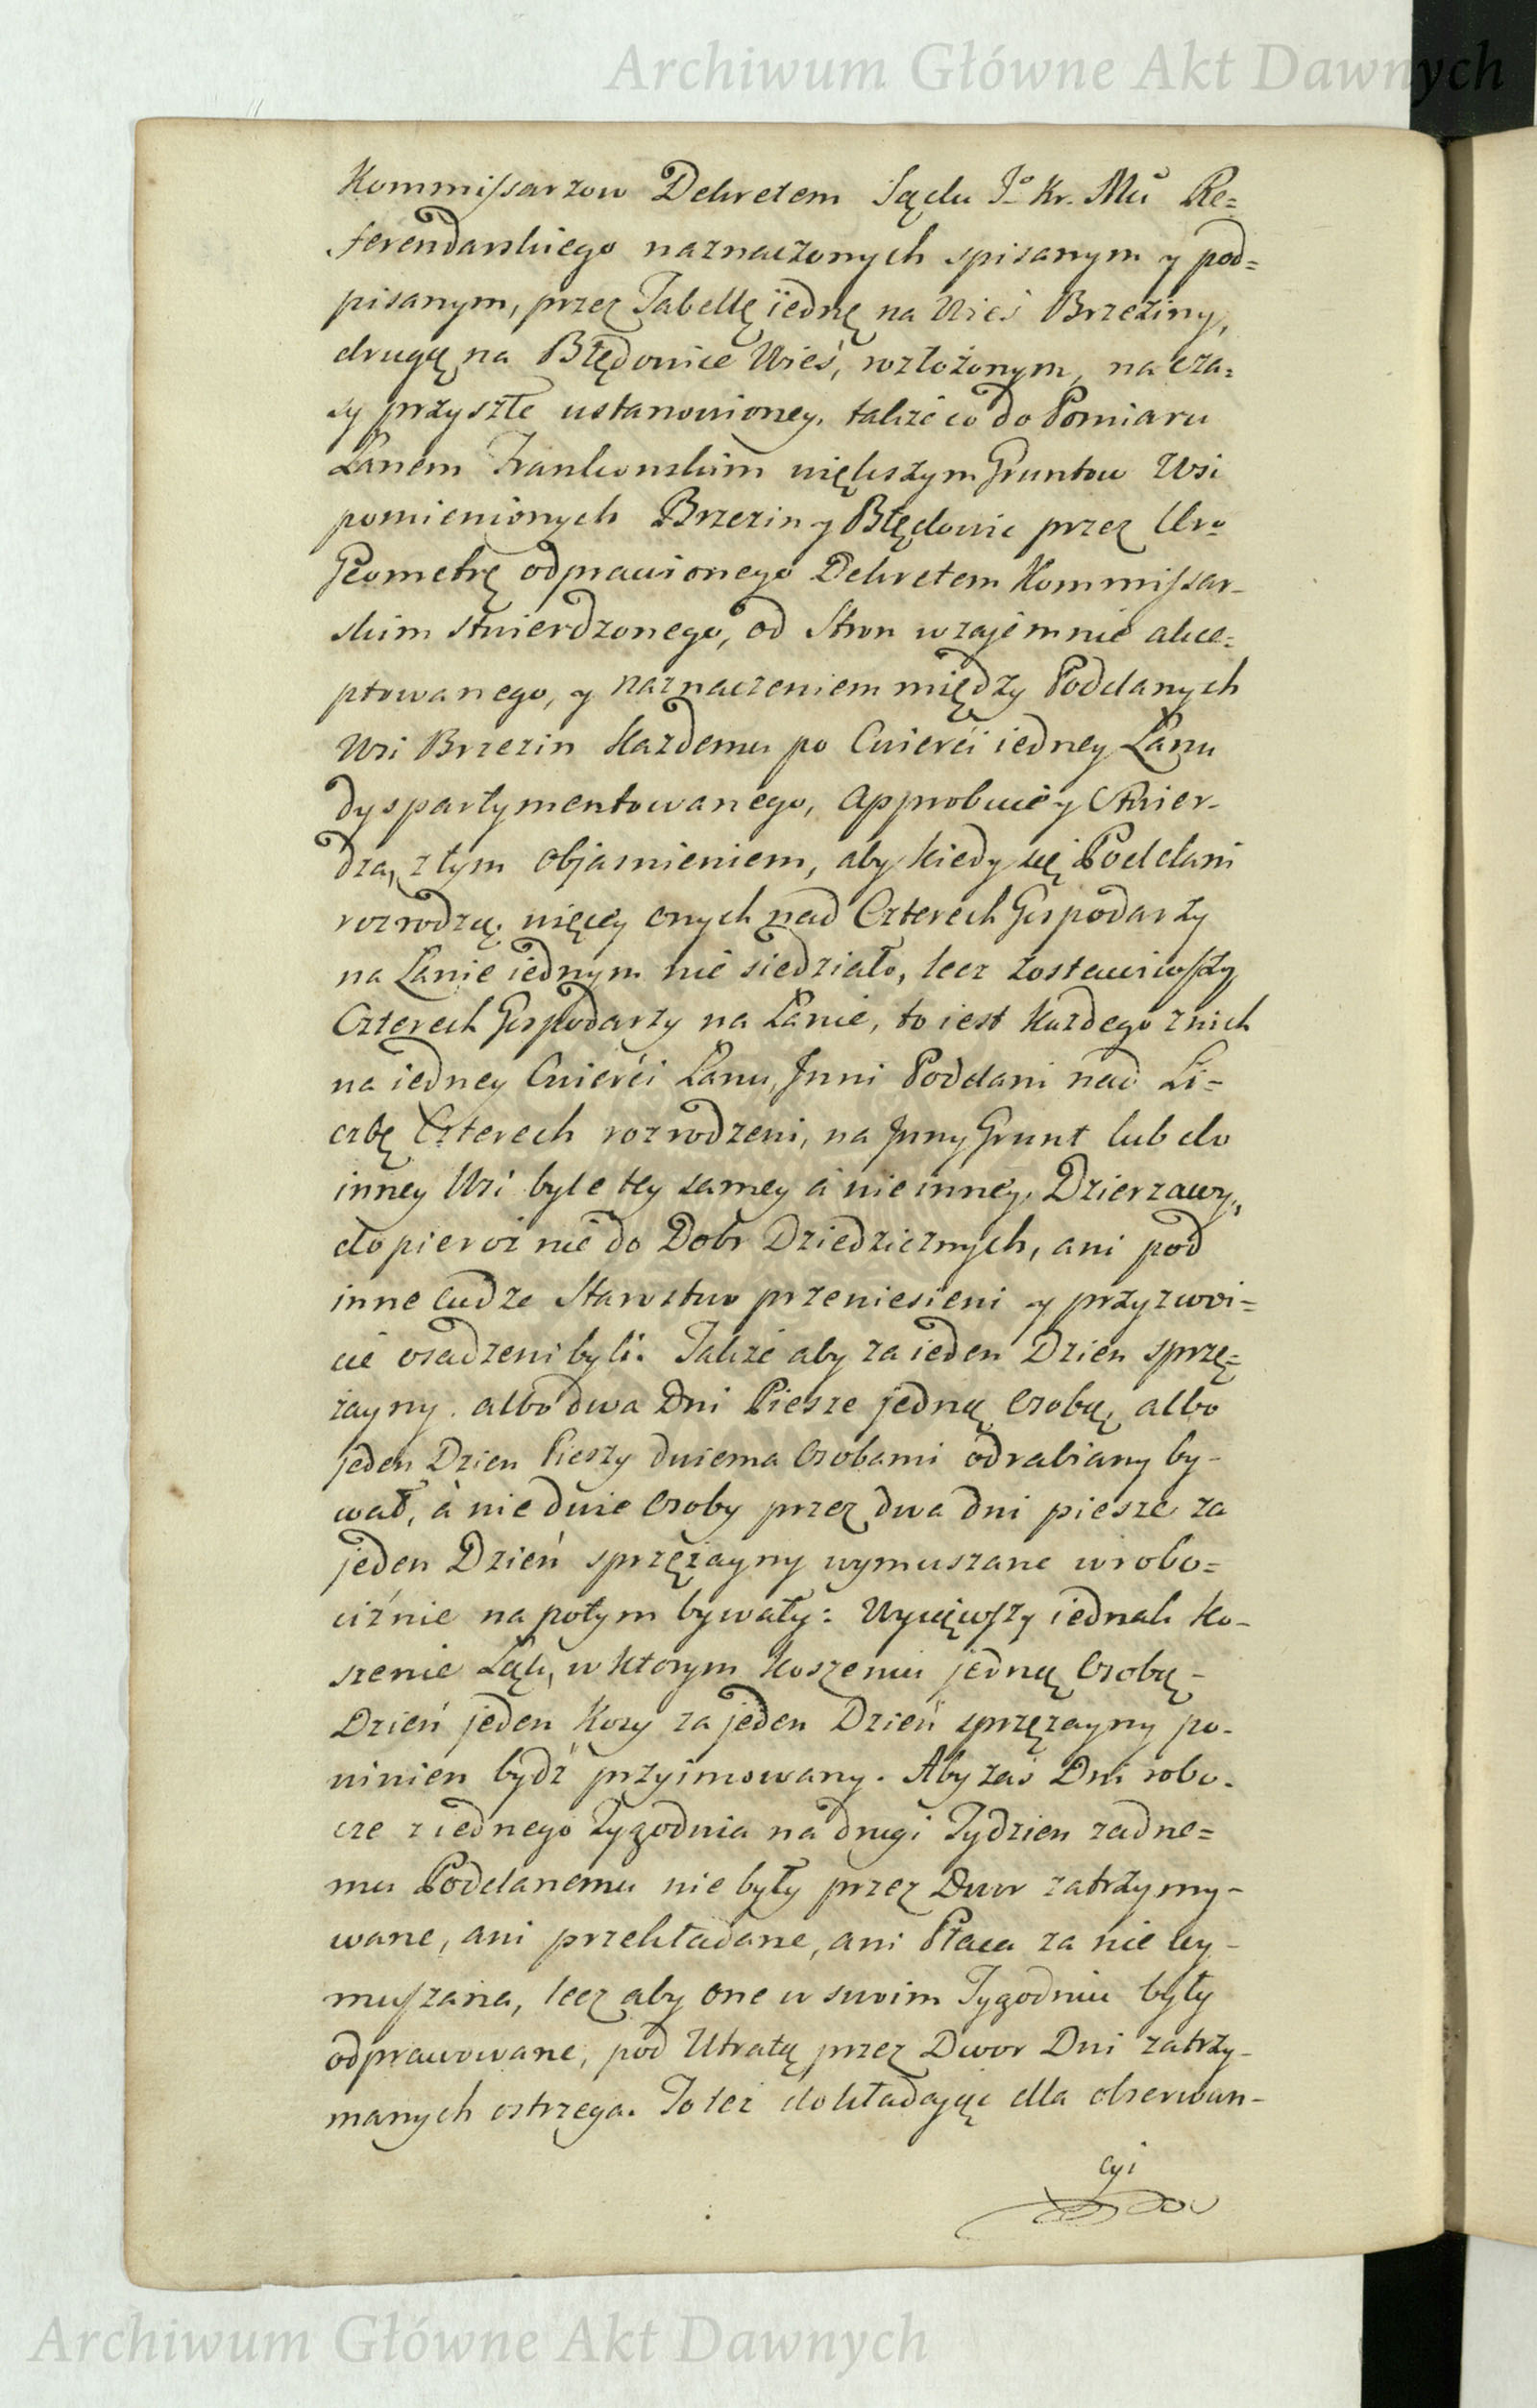 Archiwum Główne Akt Dawnych
Kommissarzow Dekretem Sądu Jo Kr. Mci Re=
ferendarskiego naznaczonych spisanym y pod=
pisanym, przez Tabellę iednę na Wieś Brzeziny,
drugą na Błędowice Wieś, rozłożonym, na cza=
sy przyszłe ustanowioney. także co do Pomiaru
Łanem Frankonskim większym Gruntow Wsi
pomienionych Brzezin y Błędowic przez Uro
Geometrę odprawionego Dekretem Kommissar-
skim stwierdzonego, od Stron wzajemnie akce=
ptowanego, y naznaczeniem między Poddanych
Wsi Brzezin każdemu po Cwierci iedney Łanu
dyspartymentowanego, approbuie y stwier-
dza, z tym objasnieniem, aby kiedy się Poddani
rozrodzą, więcey onych nad Czterech Gospodarzy
na Łanie iednym nie siedziało, lecz zostawiwszy
Czterech Gospodarzy na Łanie, to iest każdego z nich
na iedney Cwierci Łanu, Inni Poddani nad Li=
czbę Czterech rozrodzeni, na Inny Grunt lub do
inney Wsi byle tey samey a nie inney, Dzierzawy,
dopieroż nie do Dobr Dziedzicznych, ani pod
inne cudze Starostwo przeniesieni y przyzwoi=
cie osadzeni byli. Także aby za ieden Dzien sprzę=
żayny albo dwa Dni Piesze jedną Osobą, albo
jeden Dzien Pieszy dwiema Osobami odrabiany by-
wał, à nie dwie Osoby przez dwa dni piesze za
jeden Dzień sprzężayny wymuszane w robo=
ciźnie napotym bywały: Wyiąwszy iednak ko-
szenie Łąk, w ktorym koszeniu jedną Osobą-
Dzień jeden Kosy za jeden Dzień sprzężayny po-
winien bydź przyimowany. Aby zaś Dni robo-
cze z iednego Tygodnia na drugi Tydzien zadne=
mu Poddanemu nie były przez Dwor zatrzymy-
wane, ani przekładane, ani Płaca za nie wy-
muszana, lecz aby one w swoim Tygodniu były
odprawowane, pod Utratą przez Dwor Dni zatrzy-
manych ostrzega. To też dokładając dla obserwan-
cyi
Archiwum Główne Akt Dawnych